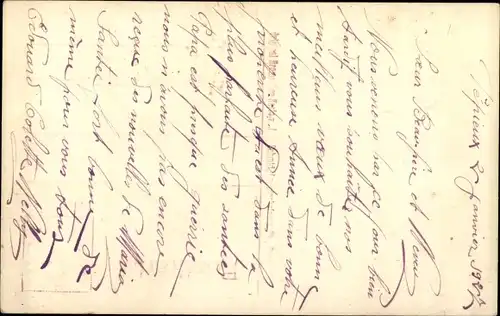 Pépieux 2 Janvier 192
Sœur Beaufrère et Neveu
Nous venons par ce jour bien
vous souhaiter nos
meilleurs vœux de bonne
et heureuse Année dans votre
est dans la
plus parfaite des santés
Papa est presque guérie
nous n'avons pas encore
reçue des nouvelles de Marie
Santé fort bonne de
même pour vous tous
Edouard Colette